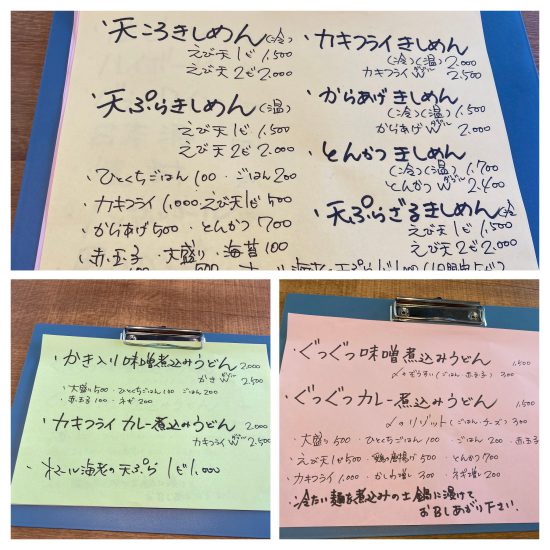 ・天ころきしめん(冷)
えび天1ピ 1.500
えび天2ピ 2.000
・天ぷらきしめん(温)
えび天1ピ 1.500
えび天2ピ 2.000
・ひとくちごはん 100 ・ごはん 200
・カキフライ 1.000 えび天1ピ 500
・からあげ 500 ・とんかつ 700
・赤玉子 ・大盛り ・海苔 100
・カキフライきしめん
(冷)(温) 2.000
カキフライW 2.500
・からあげきしめん
(冷)(温) 1.500
からあげW 2.000
・とんかつきしめん
(冷)(温) 1.700
とんかつW 2.400
・天ぷらざるきしめん(冷
えび天1ピ 1.500
えび天2ピ 2.000
・かき入り味噌煮込みうどん 2.000
かきW 2.500
・大盛り 500 ・ひとくちごはん 100 ・ごはん 200
・赤玉子 100 ・ネギ 200
・カキフライカレー煮込みうどん 2.000
カキフライW 2.500
海老の天ぷら 1ピ 1.000
・ぐつぐつ味噌煮込みうどん 1.500
〆のぞうすい(ごはん・赤玉子) 300
・ぐつぐつカレー煮込みうどん 1.500
〆のリゾット(ごはん・チーズ) 300
・大盛り 500 ・ひとくちごはん 100 ・ごはん 200 ・赤玉子
・えび天1ピ 500 ・鶏の唐揚げ 500 ・とんかつ 700
・カキフライ 1.000 ・かしわ増し 300 ・ネギ増し 200
・冷たい麺を煮込みの土鍋に浸けて
お召しあがり下さい。